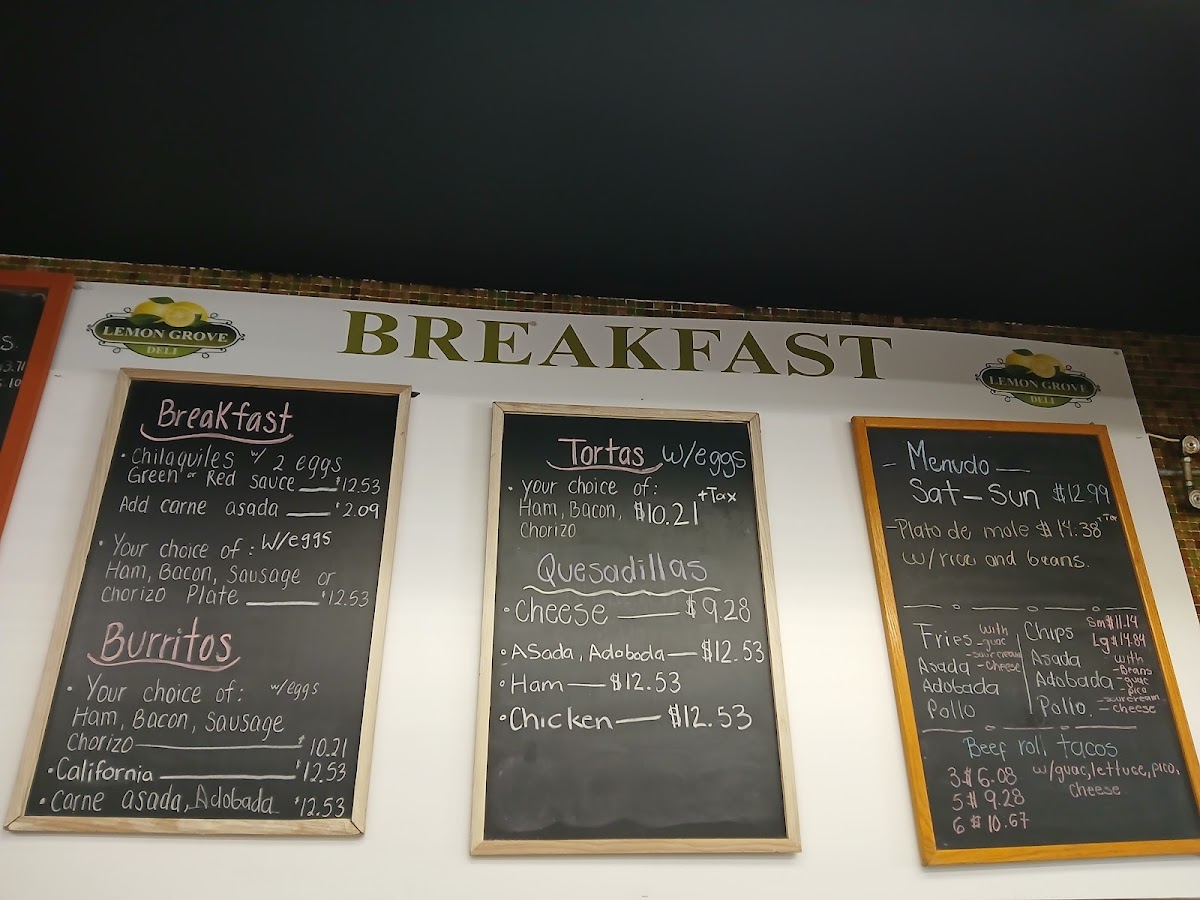 BREAKFAST
LEMON GROVE
DELI
LEMON GROVE
DELI
Breakfast
• Chilaquiles w/ 2 eggs
Green or Red sauce — $12.53
Add carne asada — $2.09
• Your choice of: w/eggs
Ham, Bacon, Sausage or
Chorizo Plate — $12.53
Burritos
• Your choice of: w/eggs
Ham, Bacon, Sausage
Chorizo — $10.21
• California — $12.53
• Carne asada, Adobada $12.53
Tortas w/eggs
• your choice of:
Ham, Bacon, $10.21 +Tax
Chorizo
Quesadillas
• Cheese — $9.28
• Asada, Adobada — $12.53
• Ham — $12.53
• Chicken — $12.53
- Menudo —
Sat - Sun $12.99
- Plato de mole $14.38 +Tax
w/rice and beans.
Fries with
- guac
- sour cream
Asada - cheese
Adobada
Pollo
Chips Sm $11.14
Lg $14.84
Asada with
- Beans
Adobada - guac
- pico
- sour cream
Pollo. - cheese
Beef roll tacos
3 $6.08 w/guac, lettuce, pico,
5 $9.28 cheese
6 $10.67